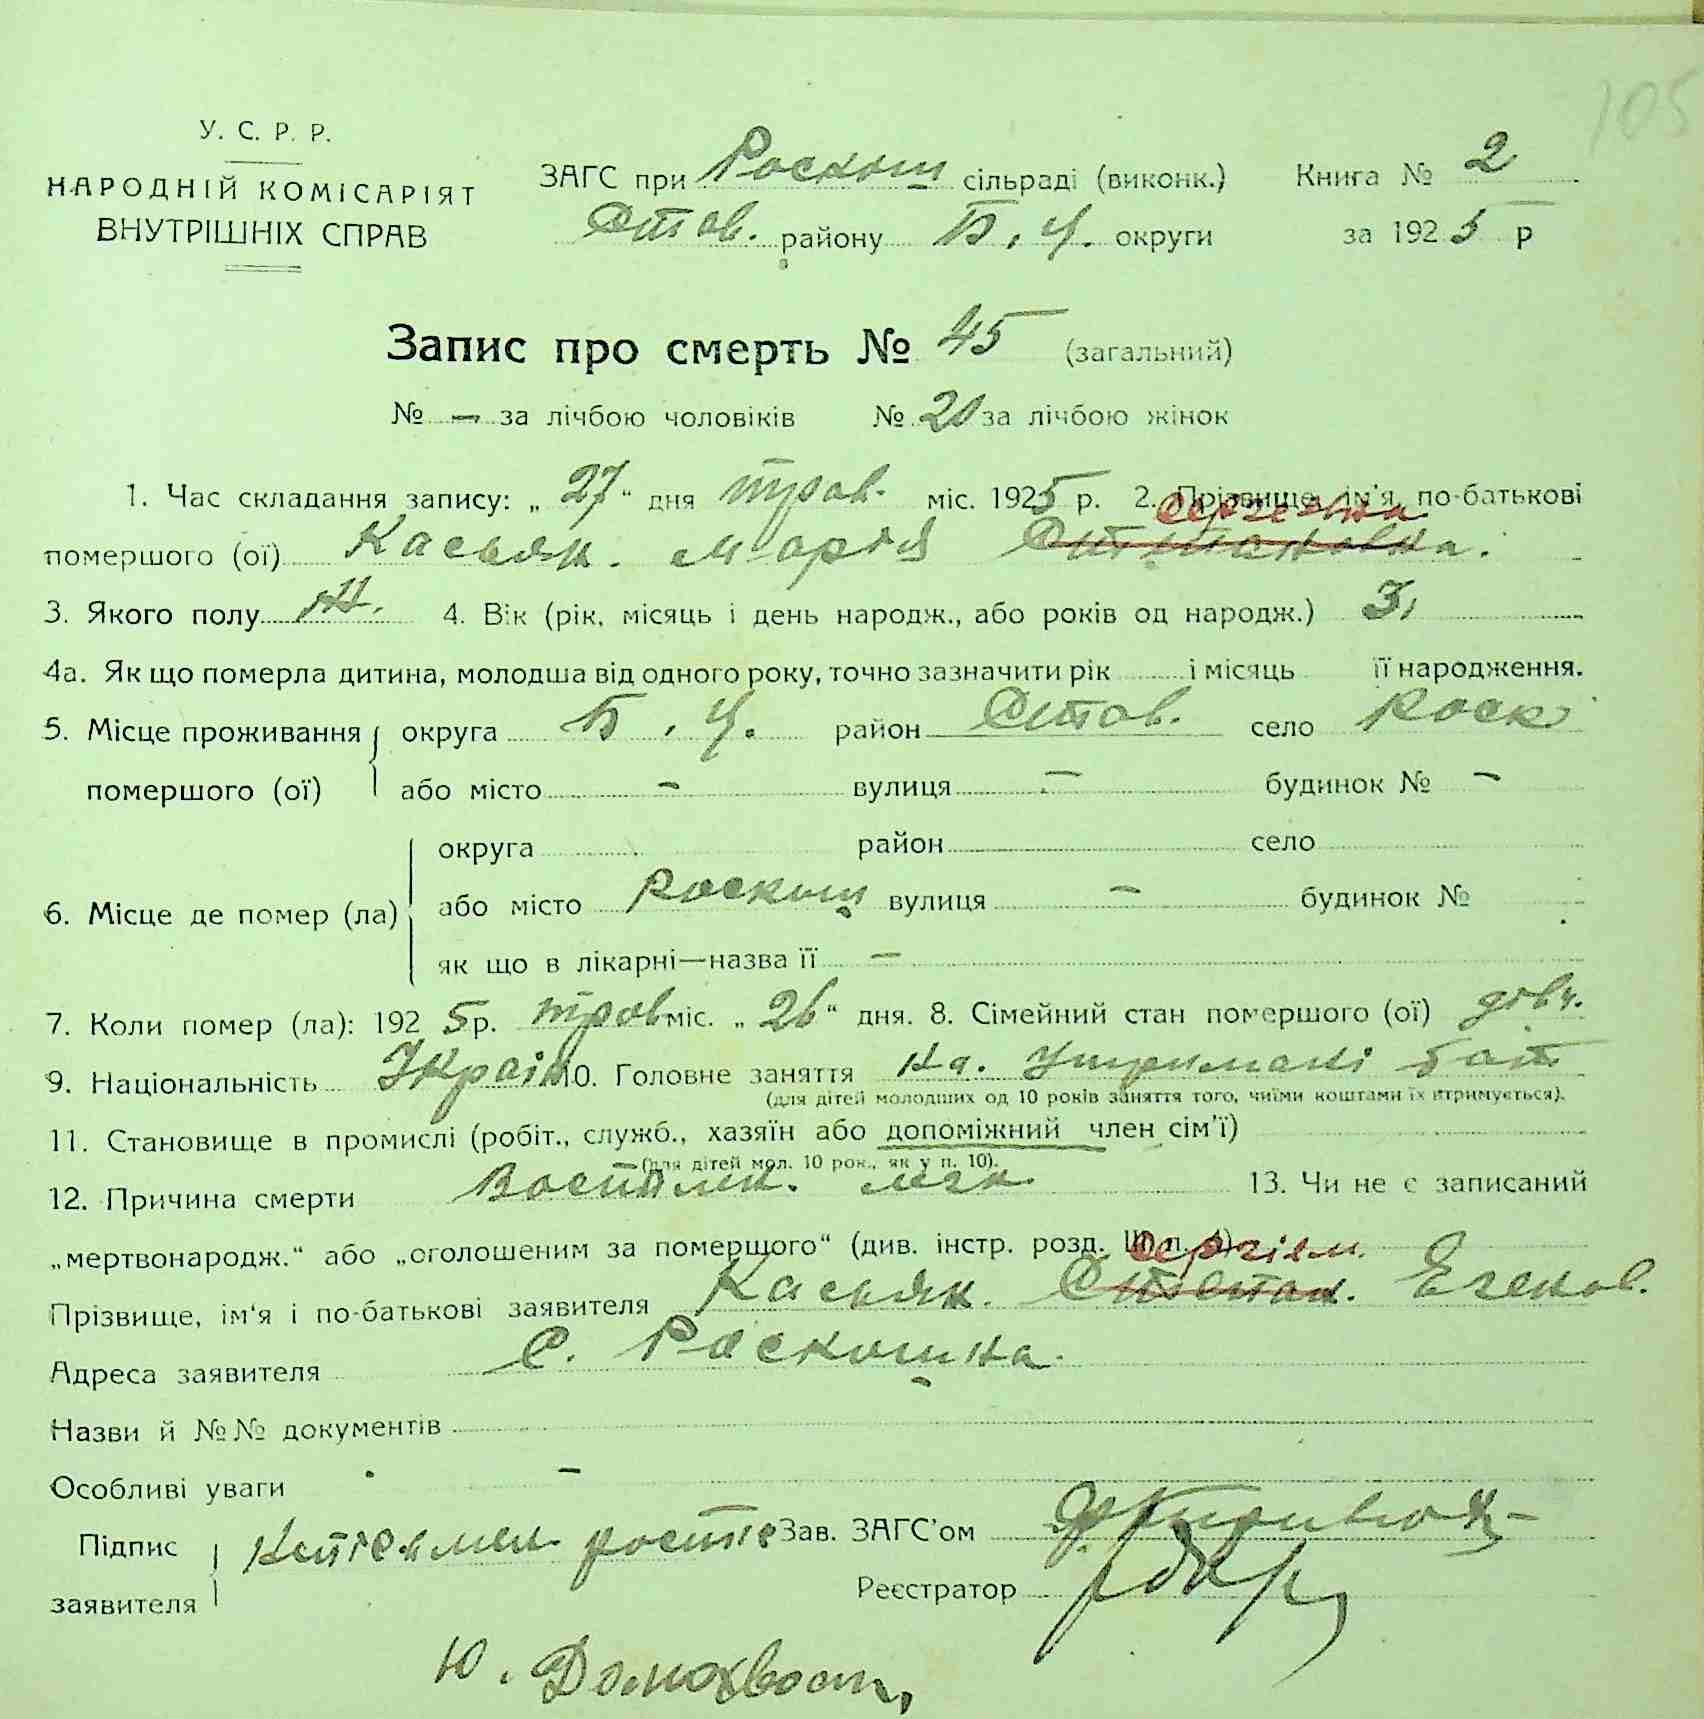 105
У. С. Р. Р.
НАРОДНІЙ КОМІСАРІЯТ
ВНУТРІШНІХ СПРАВ
ЗАГС при Роскош сільраді (виконк.) Книга № 2
Став. району Б. Ц. округи за 1925 р
Запис про смерть № 45 (загальний)
№ — за лічбою чоловіків № 20 за лічбою жінок
1. Час складання запису: „27“ дня трав. міс. 1925 р. 2. Прізвище, ім'я, по-батькові
Сергеевна
помершого (ої) Касьян. Марія Степановна.
3. Якого полу Ж. 4. Вік (рік, місяць і день народж., або років од народж.) 3,
4а. Як що померла дитина, молодша від одного року, точно зазначити рік і місяць її народження.
5. Місце проживання округа Б. Ц. район Став. село Роск
помершого (ої) або місто - вулиця - будинок № -
округа район село
6. Місце де помер (ла) або місто Роскош вулиця - будинок №
як що в лікарні—назва її —
7. Коли помер (ла): 1925 р. трав міс. „26“ дня. 8. Сімейний стан помершого (ої) дівч.
9. Національність Україн 10. Головне заняття на. утримані бат
(для дітей молодших од 10 років заняття того, чиїми коштами їх втримується).
11. Становище в промислі (робіт., служб., хазяїн або допоміжний член сім'ї)
(для дітей мол. 10 рок., як у п. 10).
12. Причина смерти Воспален. лех. 13. Чи не є записаний
„мертвонародж.“ або „оголошеним за померщого“ (див. інстр. розд. III п. 4)
Сергієм.
Прізвище, ім'я і по-батькові заявителя Касьян. Степан. Евгенов.
Адреса заявителя С. Роскошна
Назви й №№ документів
Особливі уваги -
Підпис заявителя Зав. ЗАГС'ом
Реєстратор
Ю.